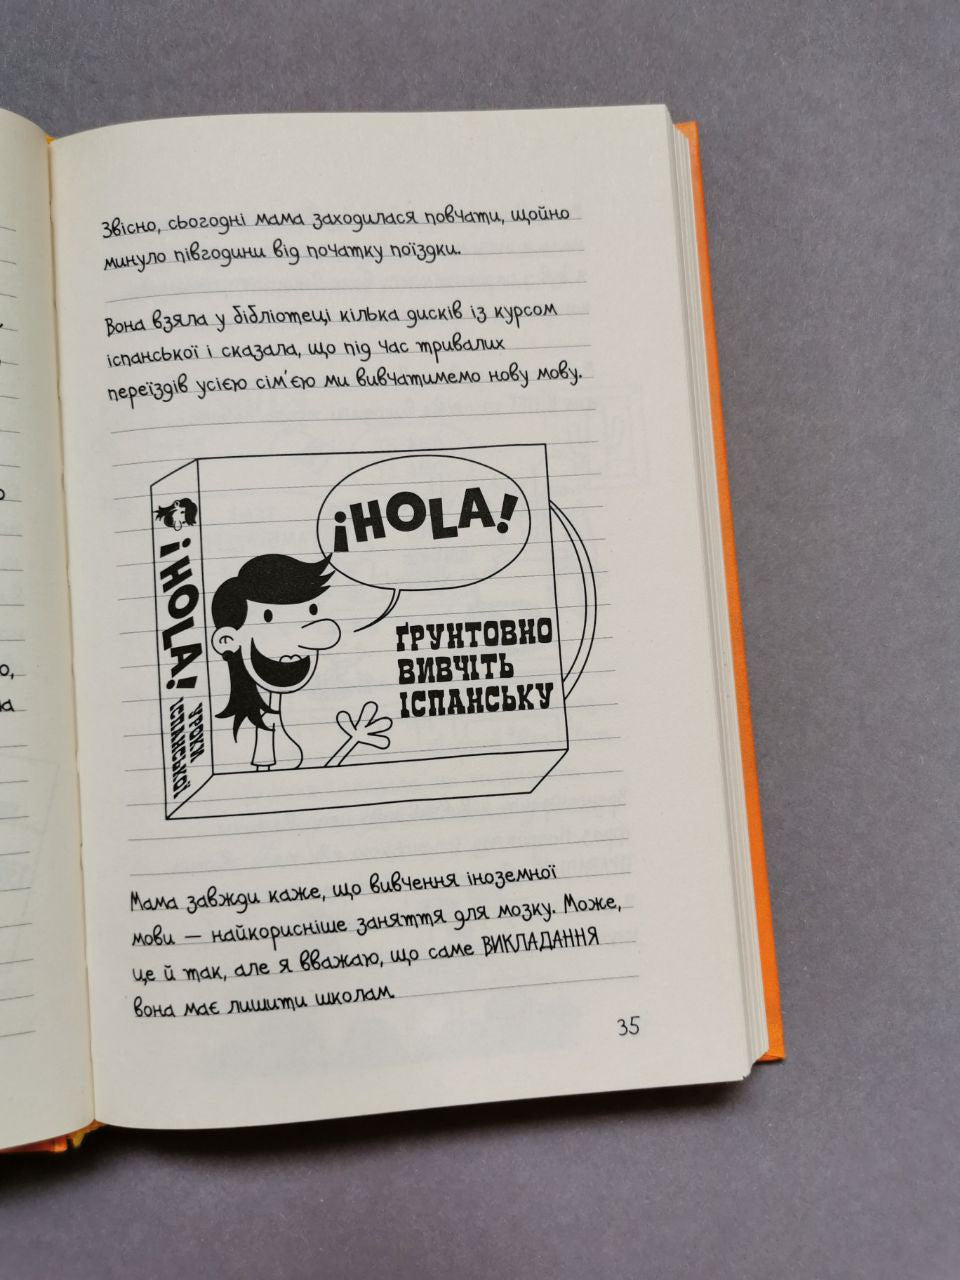 Звісно, сьогодні мама заходилася повчати, щойно
минуло півгодини від початку поїздки.
Вона взяла у бібліотеці кілька дисків із курсом
іспанської і сказала, що під час тривалих
переїздів усією сім'єю ми вивчатимемо нову мову.
¡HOLA!
¡HOLA!
УРОКИ
ІСПАНСЬКОЇ
ҐРУНТОВНО
ВИВЧІТЬ
ІСПАНСЬКУ
Мама завжди каже, що вивчення іноземної
мови — найкорисніше заняття для мозку. Може,
це й так, але я вважаю, що саме ВИКЛАДАННЯ
вона має лишити школам.
35